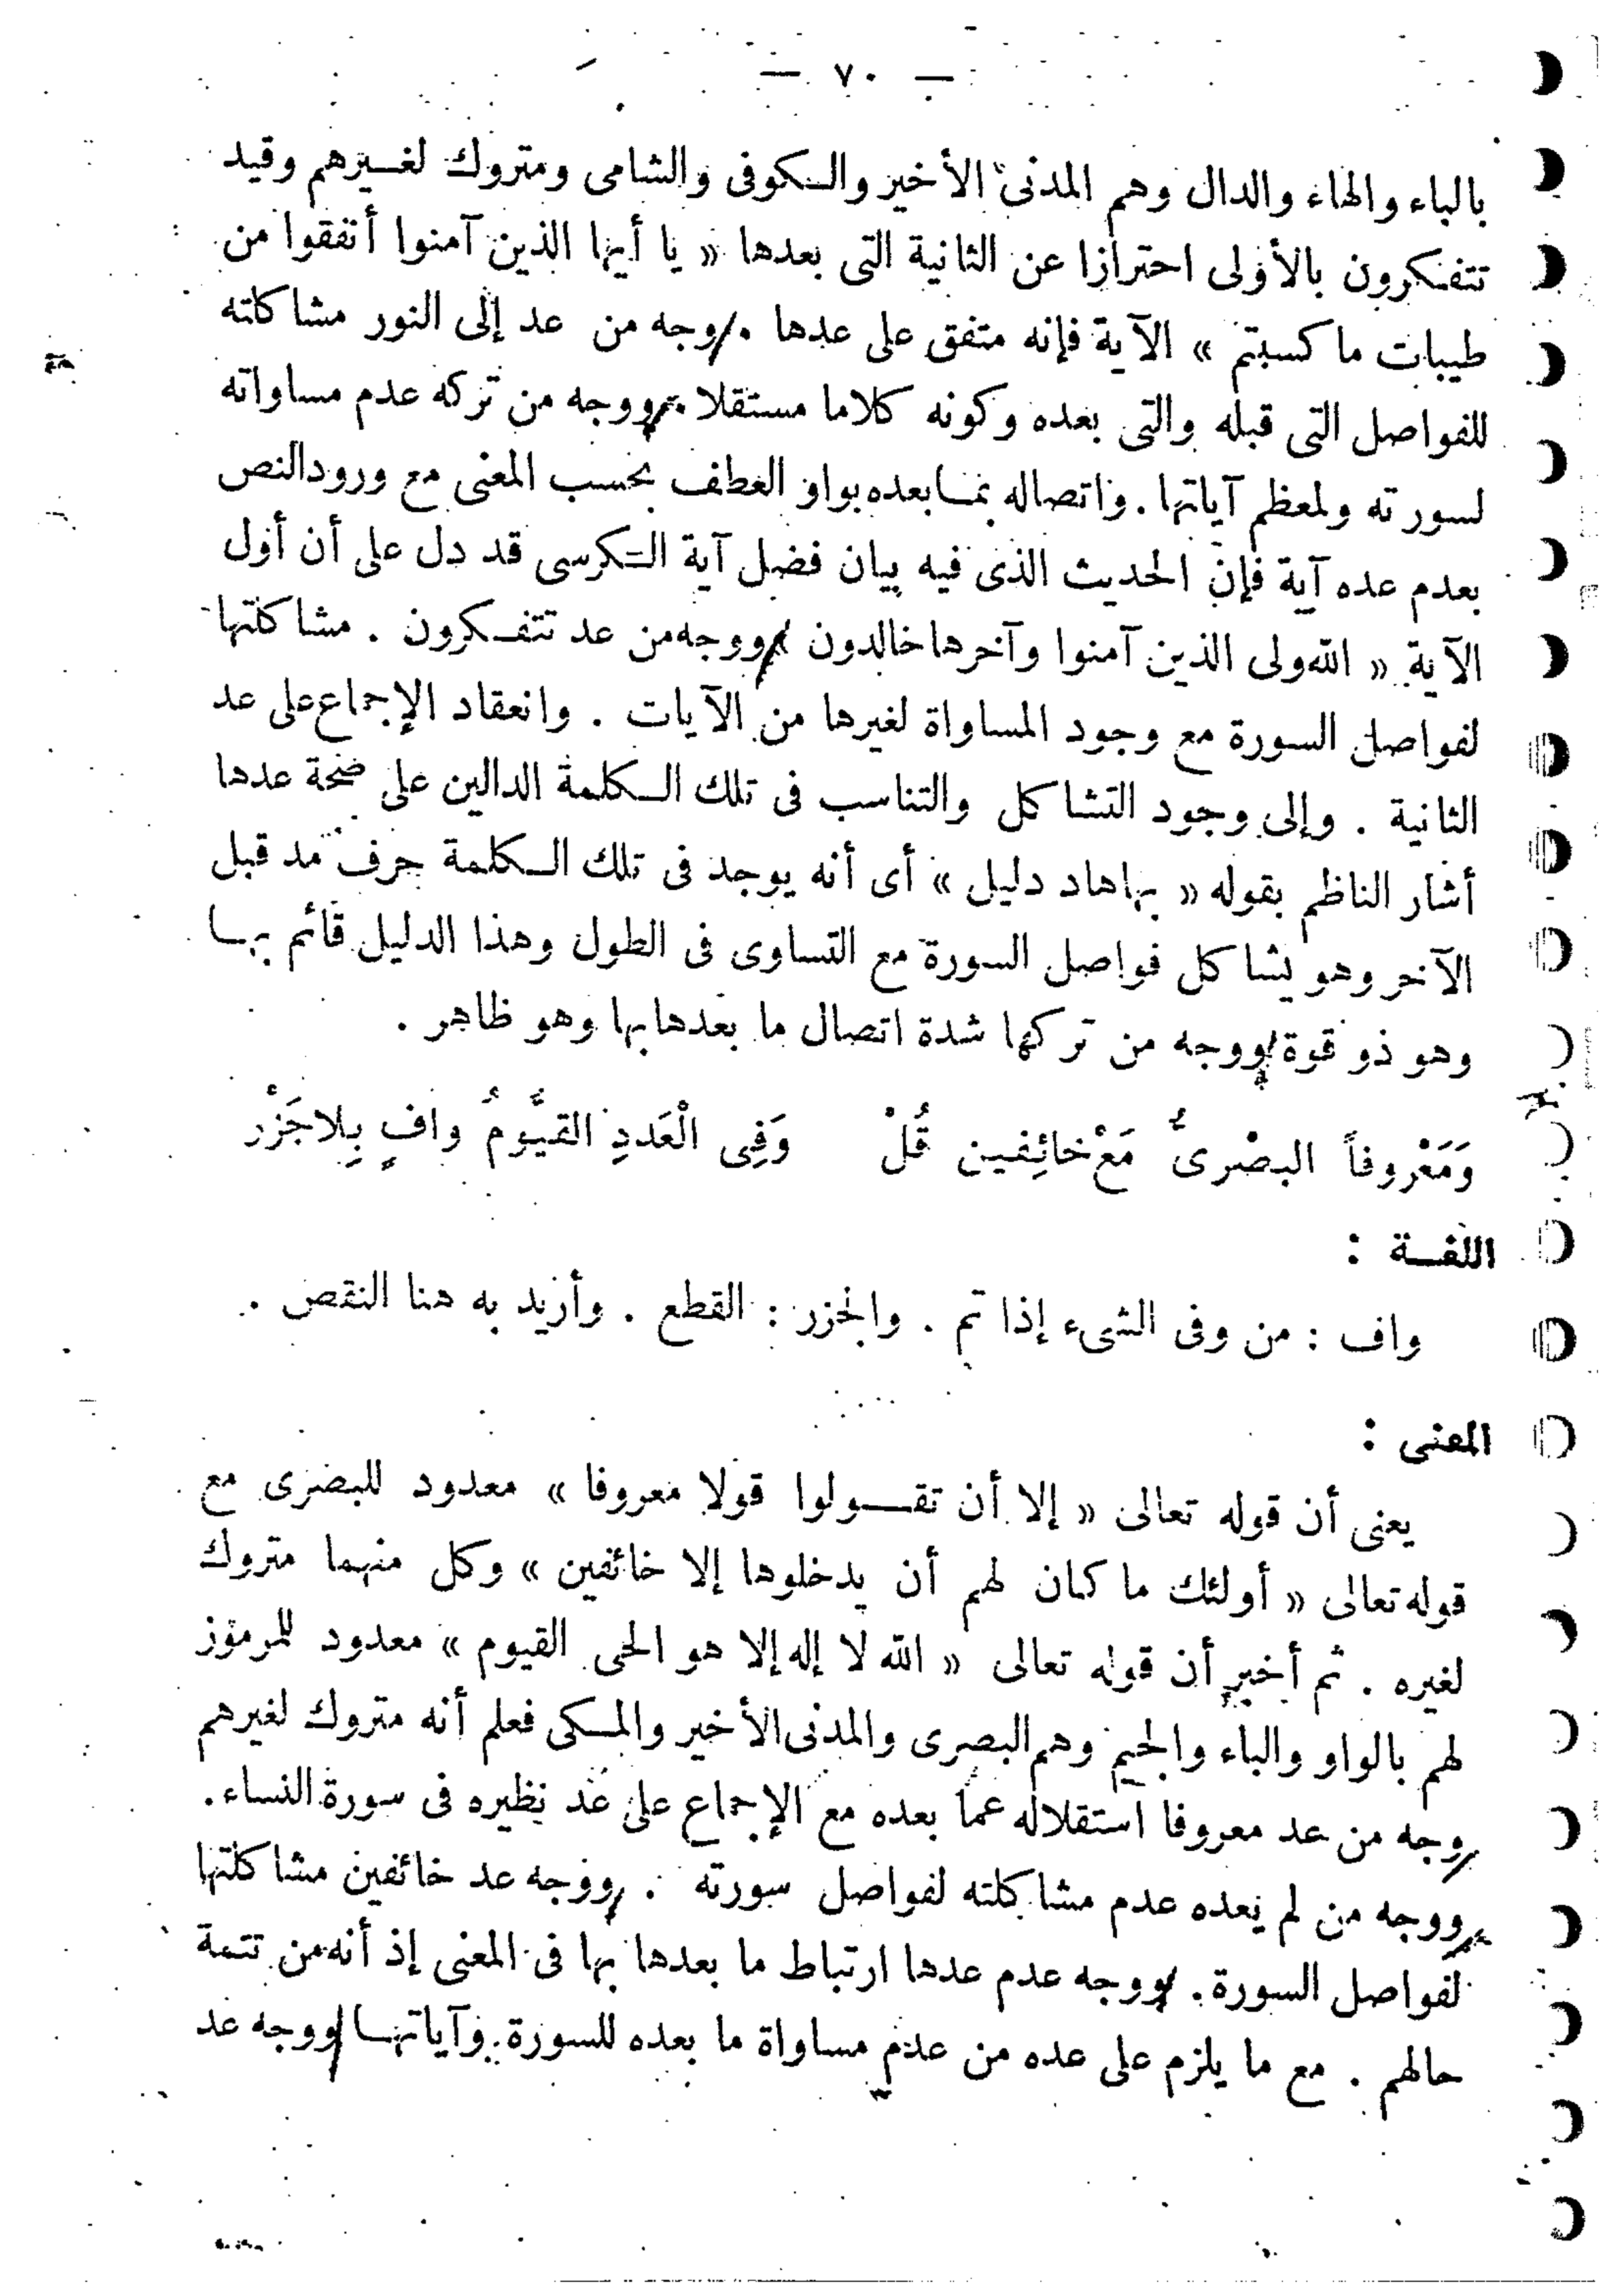 — ٧٠ —
بالباء والهاء والدال وهم المدنى الأخير والكوفى والشامى ومتروك لغيرهم وقيد
تتفكرون بالأولى احترازا عن الثانية التى بعدها « يا أيها الذين آمنوا أنفقوا من
طيبات ما كسبتم » الآية فإنه متفق على عدها . وجه من عد إلى النور مشاكلته
للفواصل التى قبله والتى بعده وكونه كلاما مستقلا . ووجه من تركه عدم مساواته
لسورته ولمعظم آياتها . واتصاله بما بعده بواو العطف بحسب المعنى مع ورود النص
بعدم عده آية فإن الحديث الذى فيه بيان فضل آية الكرسى قد دل على أن أول
الآية « الله ولى الذين آمنوا وآخرها خالدون » ووجه من عد تتفكرون . مشاكلتها
لفواصل السورة مع وجود المساواة لغيرها من الآيات . وانعقاد الإجماع على عد
الثانية . وإلى وجود التشاكل والتناسب فى تلك الكلمة الدالين على صحة عدها
أشار الناظم بقوله « بها هاد دليل » أى أنه يوجد فى تلك الكلمة حرف مد قبل
الآخر وهو يشاكل فواصل السورة مع التساوى فى الطول وهذا الدليل قائم بها
وهو ذو قوة ووجه من تركها شدة اتصال ما بعدها بها وهو ظاهر .
وَمَعْرُوفاً البصْرىُّ مَعْ خائِفين قُلْ وَفِى الْعَددِ القيُّومُ وافٍ بِلا جَزْر
اللغة :
واف : من وفى الشىء إذا تم . والجزر : القطع . وأريد به هنا النقص .
المعنى :
يعنى أن قوله تعالى « إلا أن تقولوا قولا معروفا » معدود للبصرى مع
قوله تعالى « أولئك ما كان لهم أن يدخلوها إلا خائفين » وكل منهما متروك
لغيره . ثم أخبر أن قوله تعالى « الله لا إله إلا هو الحى القيوم » معدود للمرموز
لهم بالواو والباء والجيم وهم البصرى والمدنى الأخير والمكى فعلم أنه متروك لغيرهم
وجه من عد معروفا استقلاله عما بعده مع الإجماع على عد نظيره فى سورة النساء .
ووجه من لم يعده عدم مشاكلته لفواصل سورته . ووجه عد خائفين مشاكلتها
لفواصل السورة . ووجه عدم عدها ارتباط ما بعدها بها فى المعنى إذ أنه من تتمة
حالهم . مع ما يلزم على عده من عدم مساواة ما بعده للسورة وآياتها ووجه عد